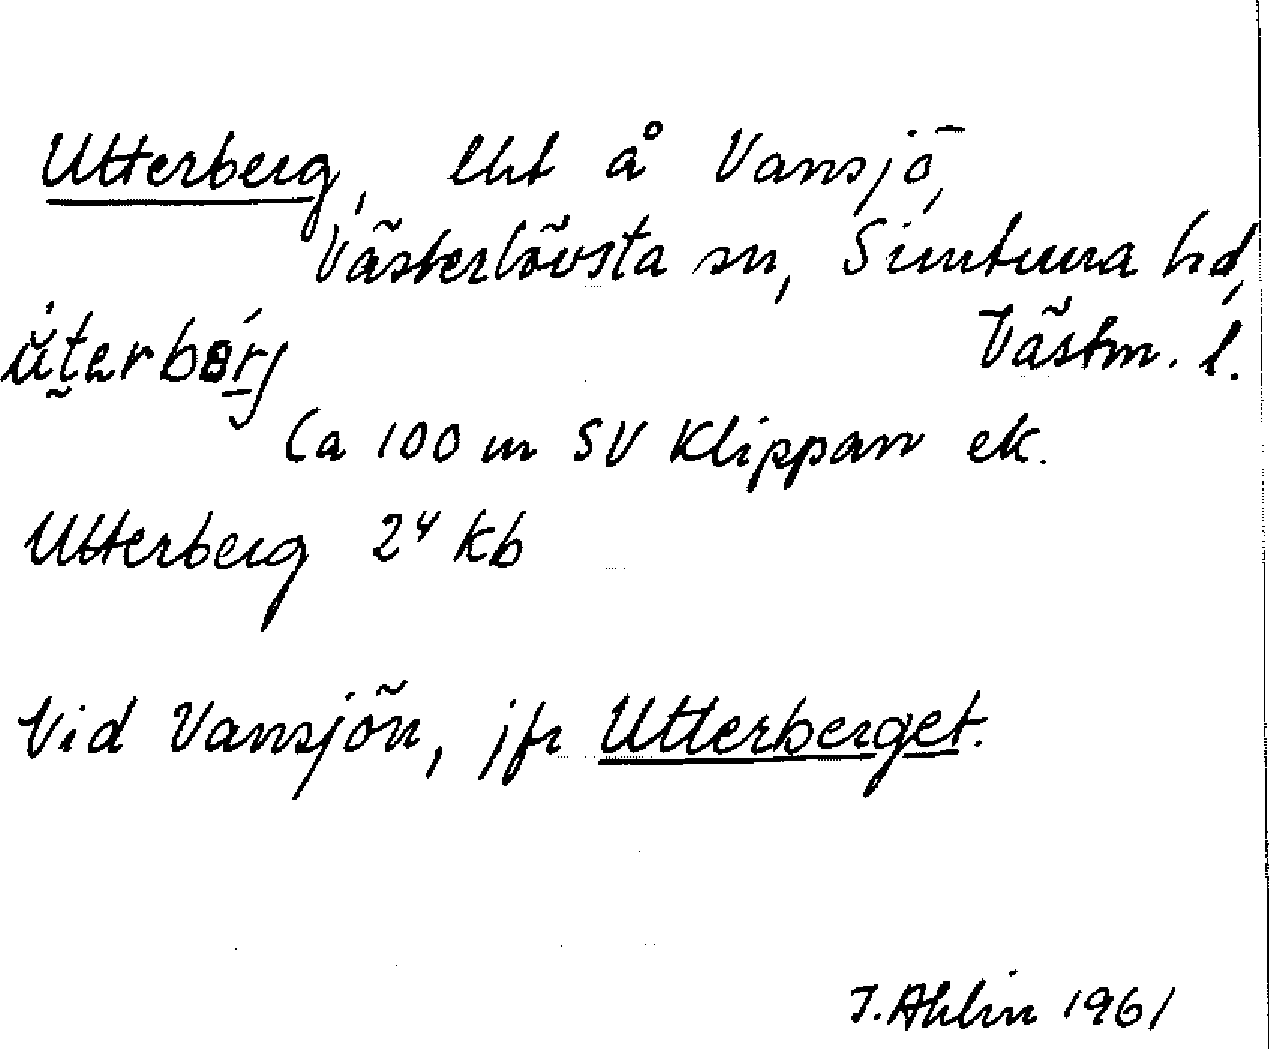 Utterberg, lht å Vansjö,
Västerlövsta sn, Simtuna hd,
Västm. l.
Ca 100 m SV Klippan ek.
Utterberg 24 kb
Vid Vansjön, jfr Utterberget.
I. Ahlin 1961